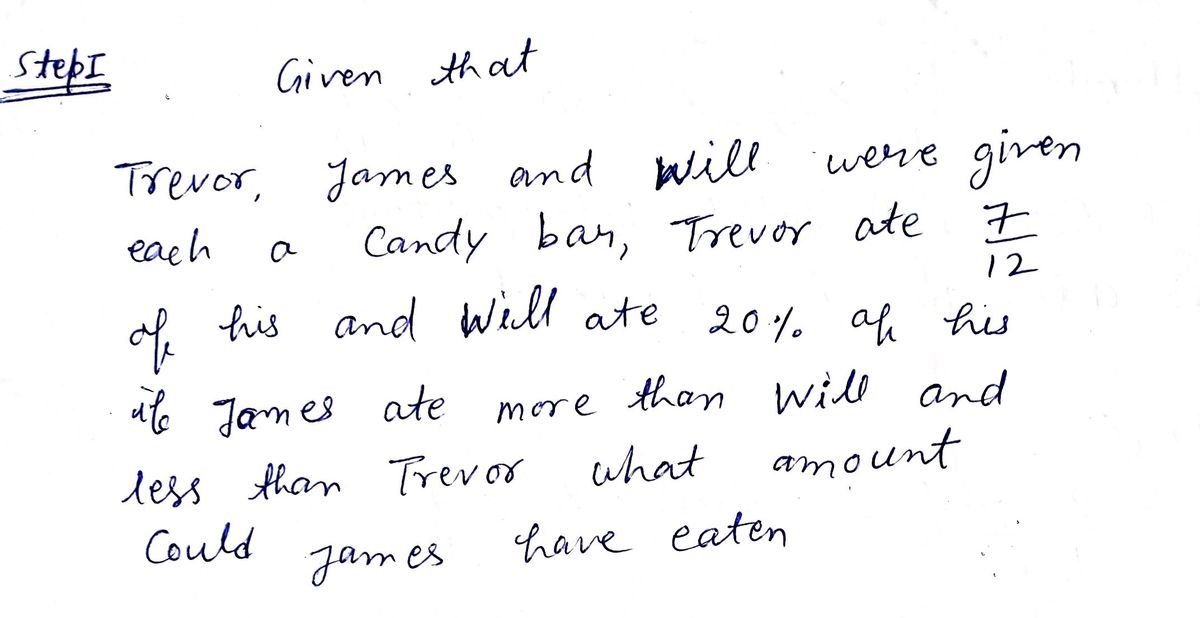 Step I Given that
Trevor, James and Will were given
each a Candy bar, Trevor ate 7/12
of his and Will ate 20% of his
if James ate more than Will and
less than Trevor what amount
Could James have eaten